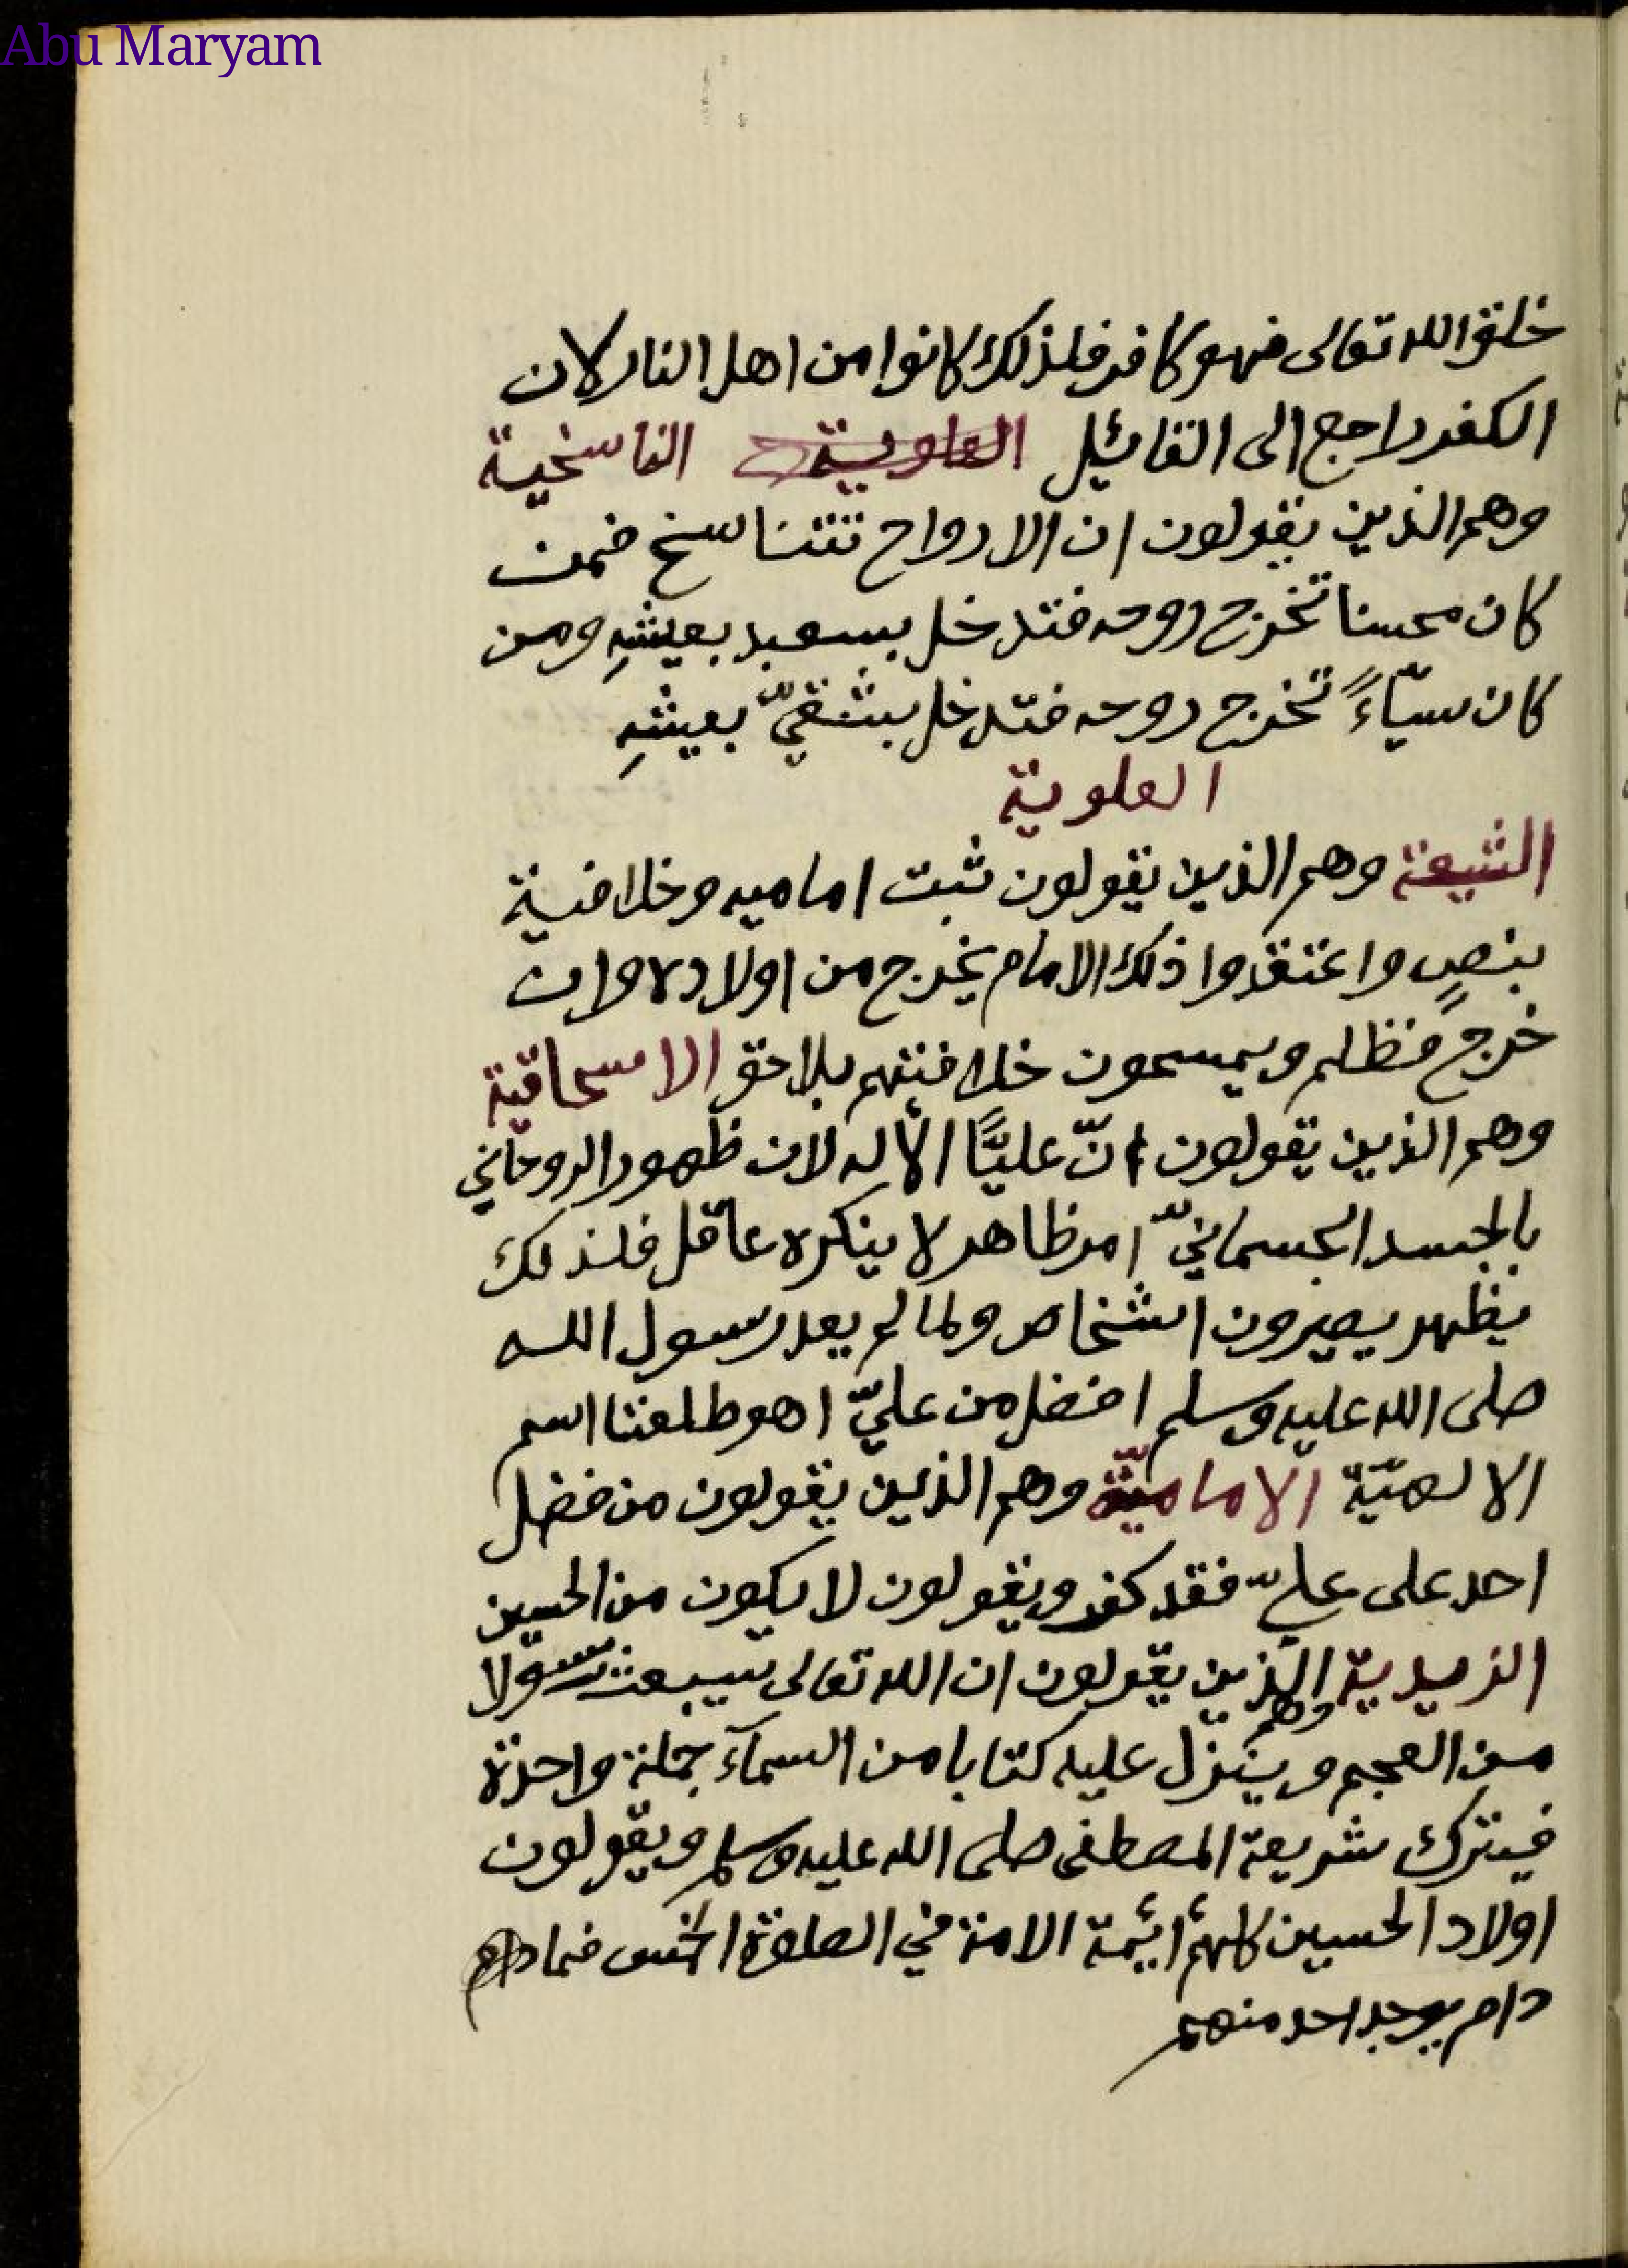 Abu Maryam
خلق الله تعالى فهو كافر فلذلك كانوا من اهل النار لان
الكفر راجع الى القائل العلوية الناسخية
وهم الذين يقولون ان الارواح تتناسخ فمن
كان محسنا تخرج روحه فتدخل بسعيد بعيشهِ ومن
كان سيّاءً تخرج روحه فتدخل بشقيّ بعيشهِ
العلوية
الشيعة وهم الذين يقولون ثبت اماميه وخلافية
بنصٍ واعتقدوا ذلك الامام يخرج من اولاده وان
خرج فظلم ويمسحون خلافتهم بلا حق الاسحاقية
وهم الذين يقولون انّ عليًّا الأله لان ظهور الروحاني
بالجسد الجسمانيّ امر ظاهر لا ينكره عاقل فلذلك
يظهر يصيرون اشخاص ولما لم يعد رسول الله
صلى الله عليه وسلم افضل من عليّ اهو طلعنا اسم
الالهيّة الاماميّة وهم الذين يقولون من فضل
احد على عليّ فقد كفر ويقولون لا يكون من الحسين
الزيدية وهم الذين يقولون ان الله تعالى سيبعث رسولا
من العجم وينزل عليه كتابا من السمآء جملة واحدة
فيترك شريعة المصطفى صلى الله عليه وسلم ويقولون
اولاد الحسين كلهم أئمة الامة في الصلوة الخمس فما دام
دام يوجد احد منهم